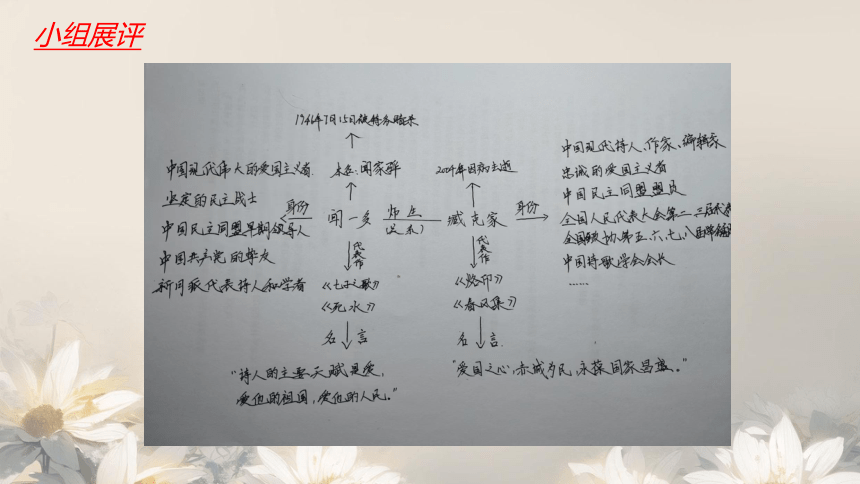 小组展评
1946年7月15日被特务暗杀
中国现代伟大的爱国主义者.
坚定的民主战士
中国民主同盟早期领导人
中国共产党的挚友
新月派代表诗人和学者
本名:闻家骅
身份
闻一多
师生
(关系)
代表作
《七子之歌》
《死水》
名言
"诗人的主要天赋是爱,
爱他的祖国,爱他的人民。"
2004年因病去逝
臧克家
身份
代表作
《烙印》
《春风集》
名言.
"爱国之心,赤诚为民,永葆国家昌盛。"
中国现代诗人、作家、编辑家
忠诚的爱国主义者
中国民主同盟盟员
全国人民代表大会第二、三届代表
全国政协第五、六、七、八届
中国诗歌学会会长
……